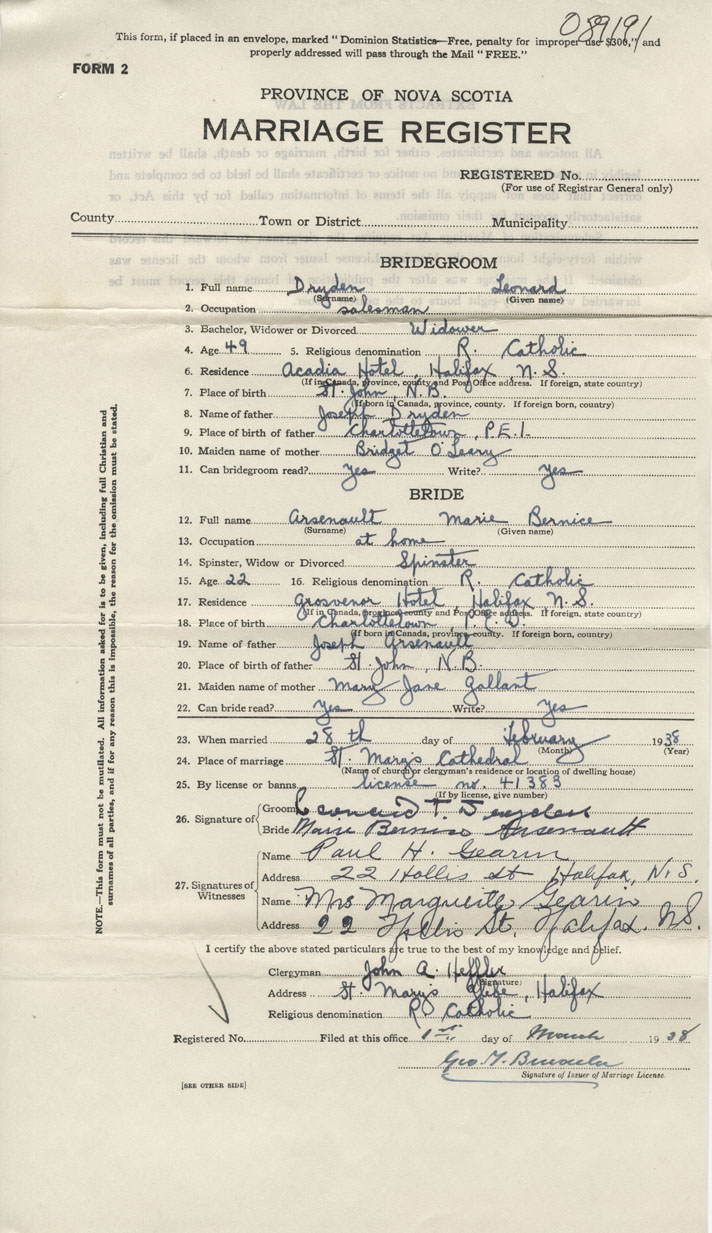 089191
This form, if placed in an envelope, marked "Dominion Statistics—Free, penalty for improper use $300," and
properly addressed will pass through the Mail "FREE."
FORM 2
PROVINCE OF NOVA SCOTIA
MARRIAGE REGISTER
REGISTERED No.
(For use of Registrar General only)
County Town or District Municipality
BRIDEGROOM
1. Full name Dryden Leonard
(Surname) (Given name)
2. Occupation salesman
3. Bachelor, Widower or Divorced Widower
4. Age 49 5. Religious denomination R. Catholic
6. Residence Acadia Hotel, Halifax N.S.
(If in Canada, province, county and Post Office address. If foreign, state country)
7. Place of birth St. John, N.B.
(If born in Canada, province, county. If foreign born, country)
8. Name of father Joseph Dryden
9. Place of birth of father Charlottetown, P.E.I.
10. Maiden name of mother Bridget O'Leary
11. Can bridegroom read? yes Write? yes
BRIDE
12. Full name Arsenault Marie Bernice
(Surname) (Given name)
13. Occupation at home
14. Spinster, Widow or Divorced Spinster
15. Age 22 16. Religious denomination R. Catholic
17. Residence Grosvenor Hotel, Halifax N.S.
(If in Canada, province county and Post Office address. If foreign, state country)
18. Place of birth Charlottetown,
(If born in Canada, province, county. If foreign born, country)
19. Name of father Joseph Arsenault
20. Place of birth of father St. John, N.B.
21. Maiden name of mother Mary Jane Gallant
22. Can bride read? Yes Write? Yes
23. When married 28 th day of February 1938
(Month) (Year)
24. Place of marriage St. Mary's Cathedral
(Name of church or clergyman's residence or location of dwelling house)
25. By license or banns license no. 41383
(If by license, give number)
26. Signature of Groom Leonard T. Dryden
Bride Marie Bernice Arsenault
27. Signatures of Witnesses
Name Paul H. Gearin
Address 22 Hollis St Halifax, N.S.
Name Mrs Marguerite Gearin
Address 22 Hollis St, Halifax. NS.
I certify the above stated particulars are true to the best of my knowledge and belief.
Clergyman John A. Heffler
(Signature)
Address St. Mary's Glebe, Halifax
Religious denomination R Catholic
Registered No. Filed at this office 1st day of March 1938
Geo. 
Signature of Issuer of Marriage License.
[SEE OTHER SIDE]
NOTE.—This form must not be mutilated. All information asked for is to be given, including full Christian and
surnames of all parties, and if for any reason this is impossible, the reason for the omission must be stated.